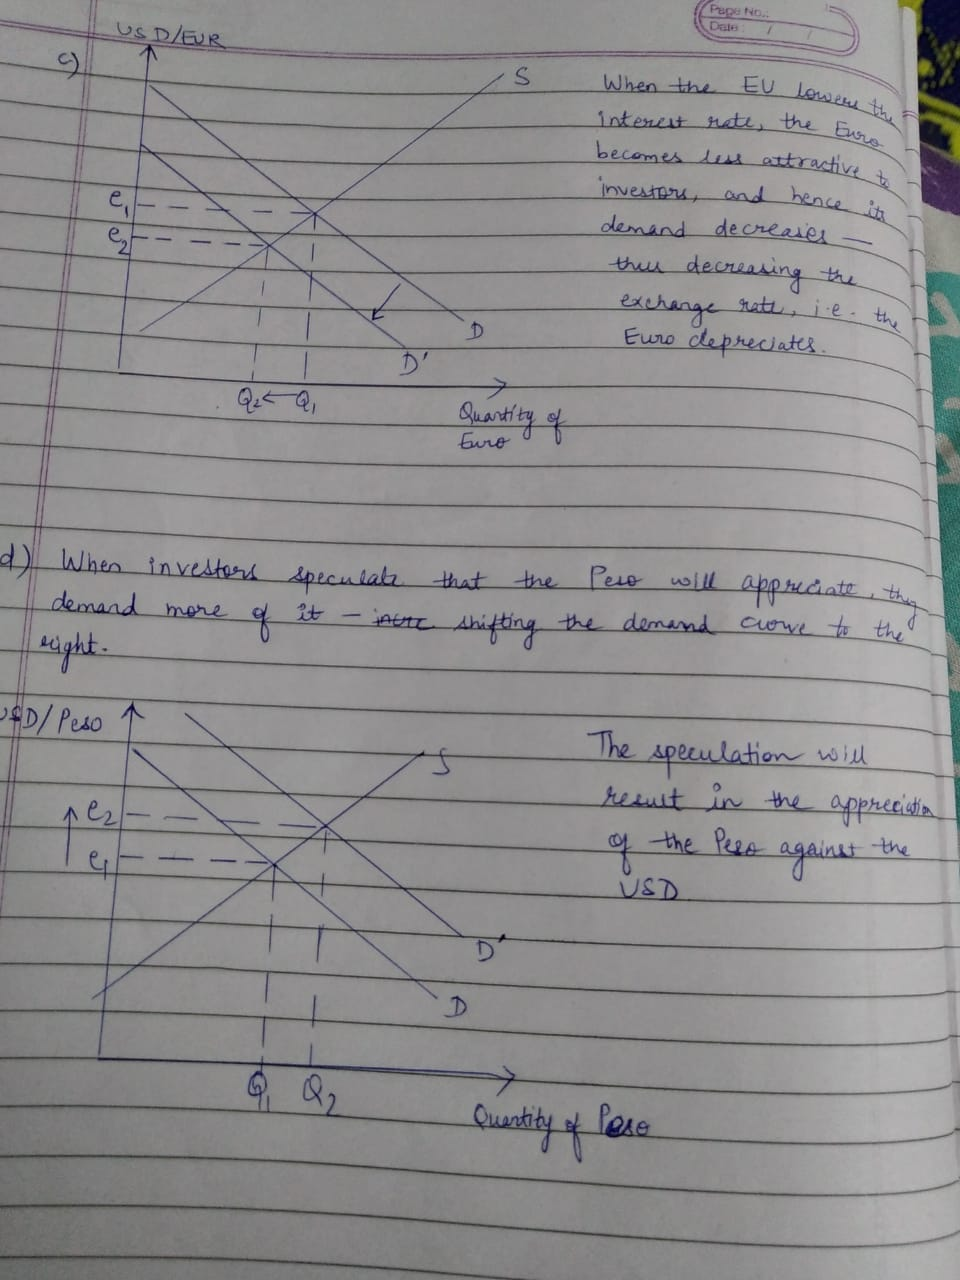 Page No.:
Date: / /
USD/EUR
c)
S
e1
e2
D
D'
Q2 ← Q1
Quantity of
Euro
When the EU lowers the
interest rate, the Euro
becomes less attractive to
investors, and hence its
demand decreases —
thus decreasing the
exchange rate, i.e. the
Euro depreciates.
d) When investors speculate that the Peso will appreciate, they
demand more of it – shifting the demand curve to the
right.
USD/Peso
S
e2
e1
D'
D
Q1 Q2
Quantity of Peso
The speculation will
result in the appreciation
of the Peso against the
USD